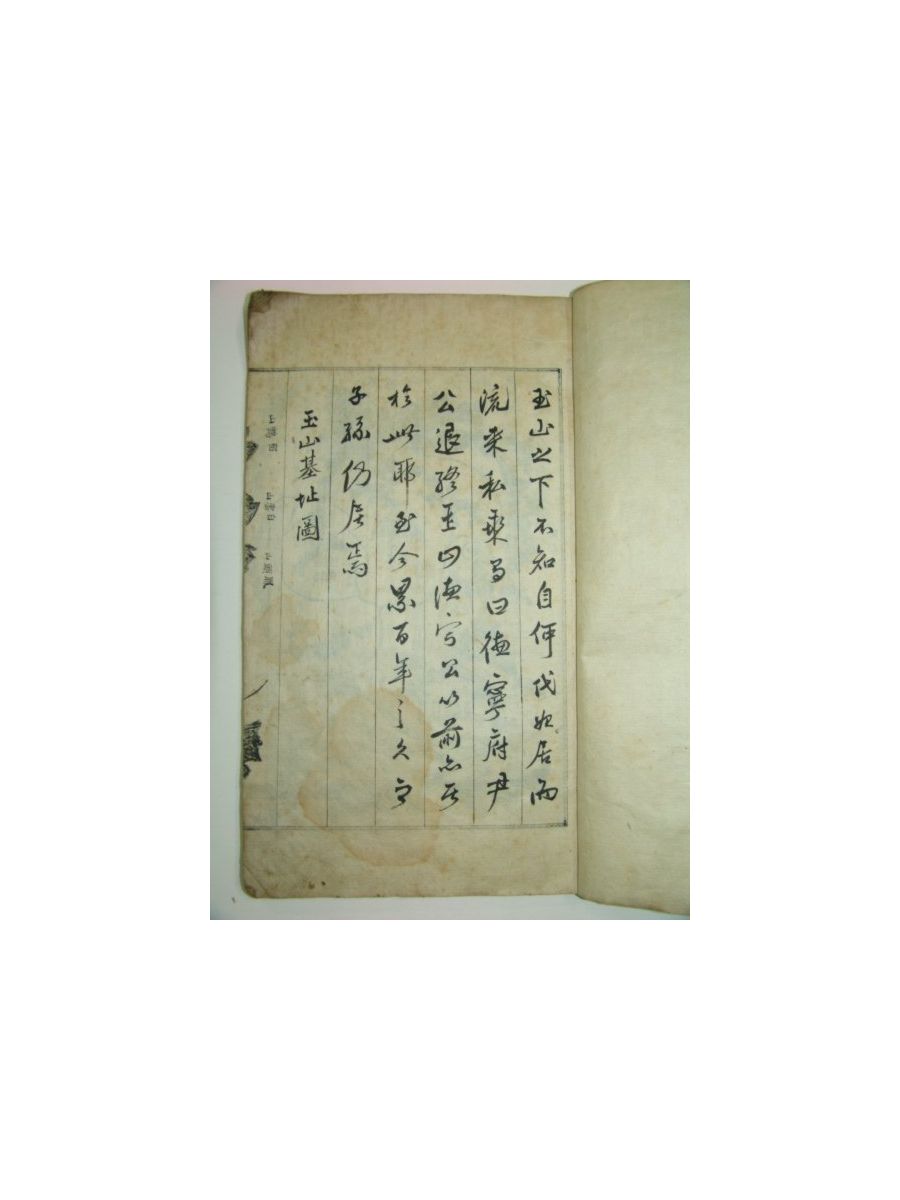 玉山之下不知自何代始居而
流來私乘曰德寧府尹
公退終玉山德寧公以前亦居
於此耶至今累百年之久而
子孫仍居焉
玉山基址圖